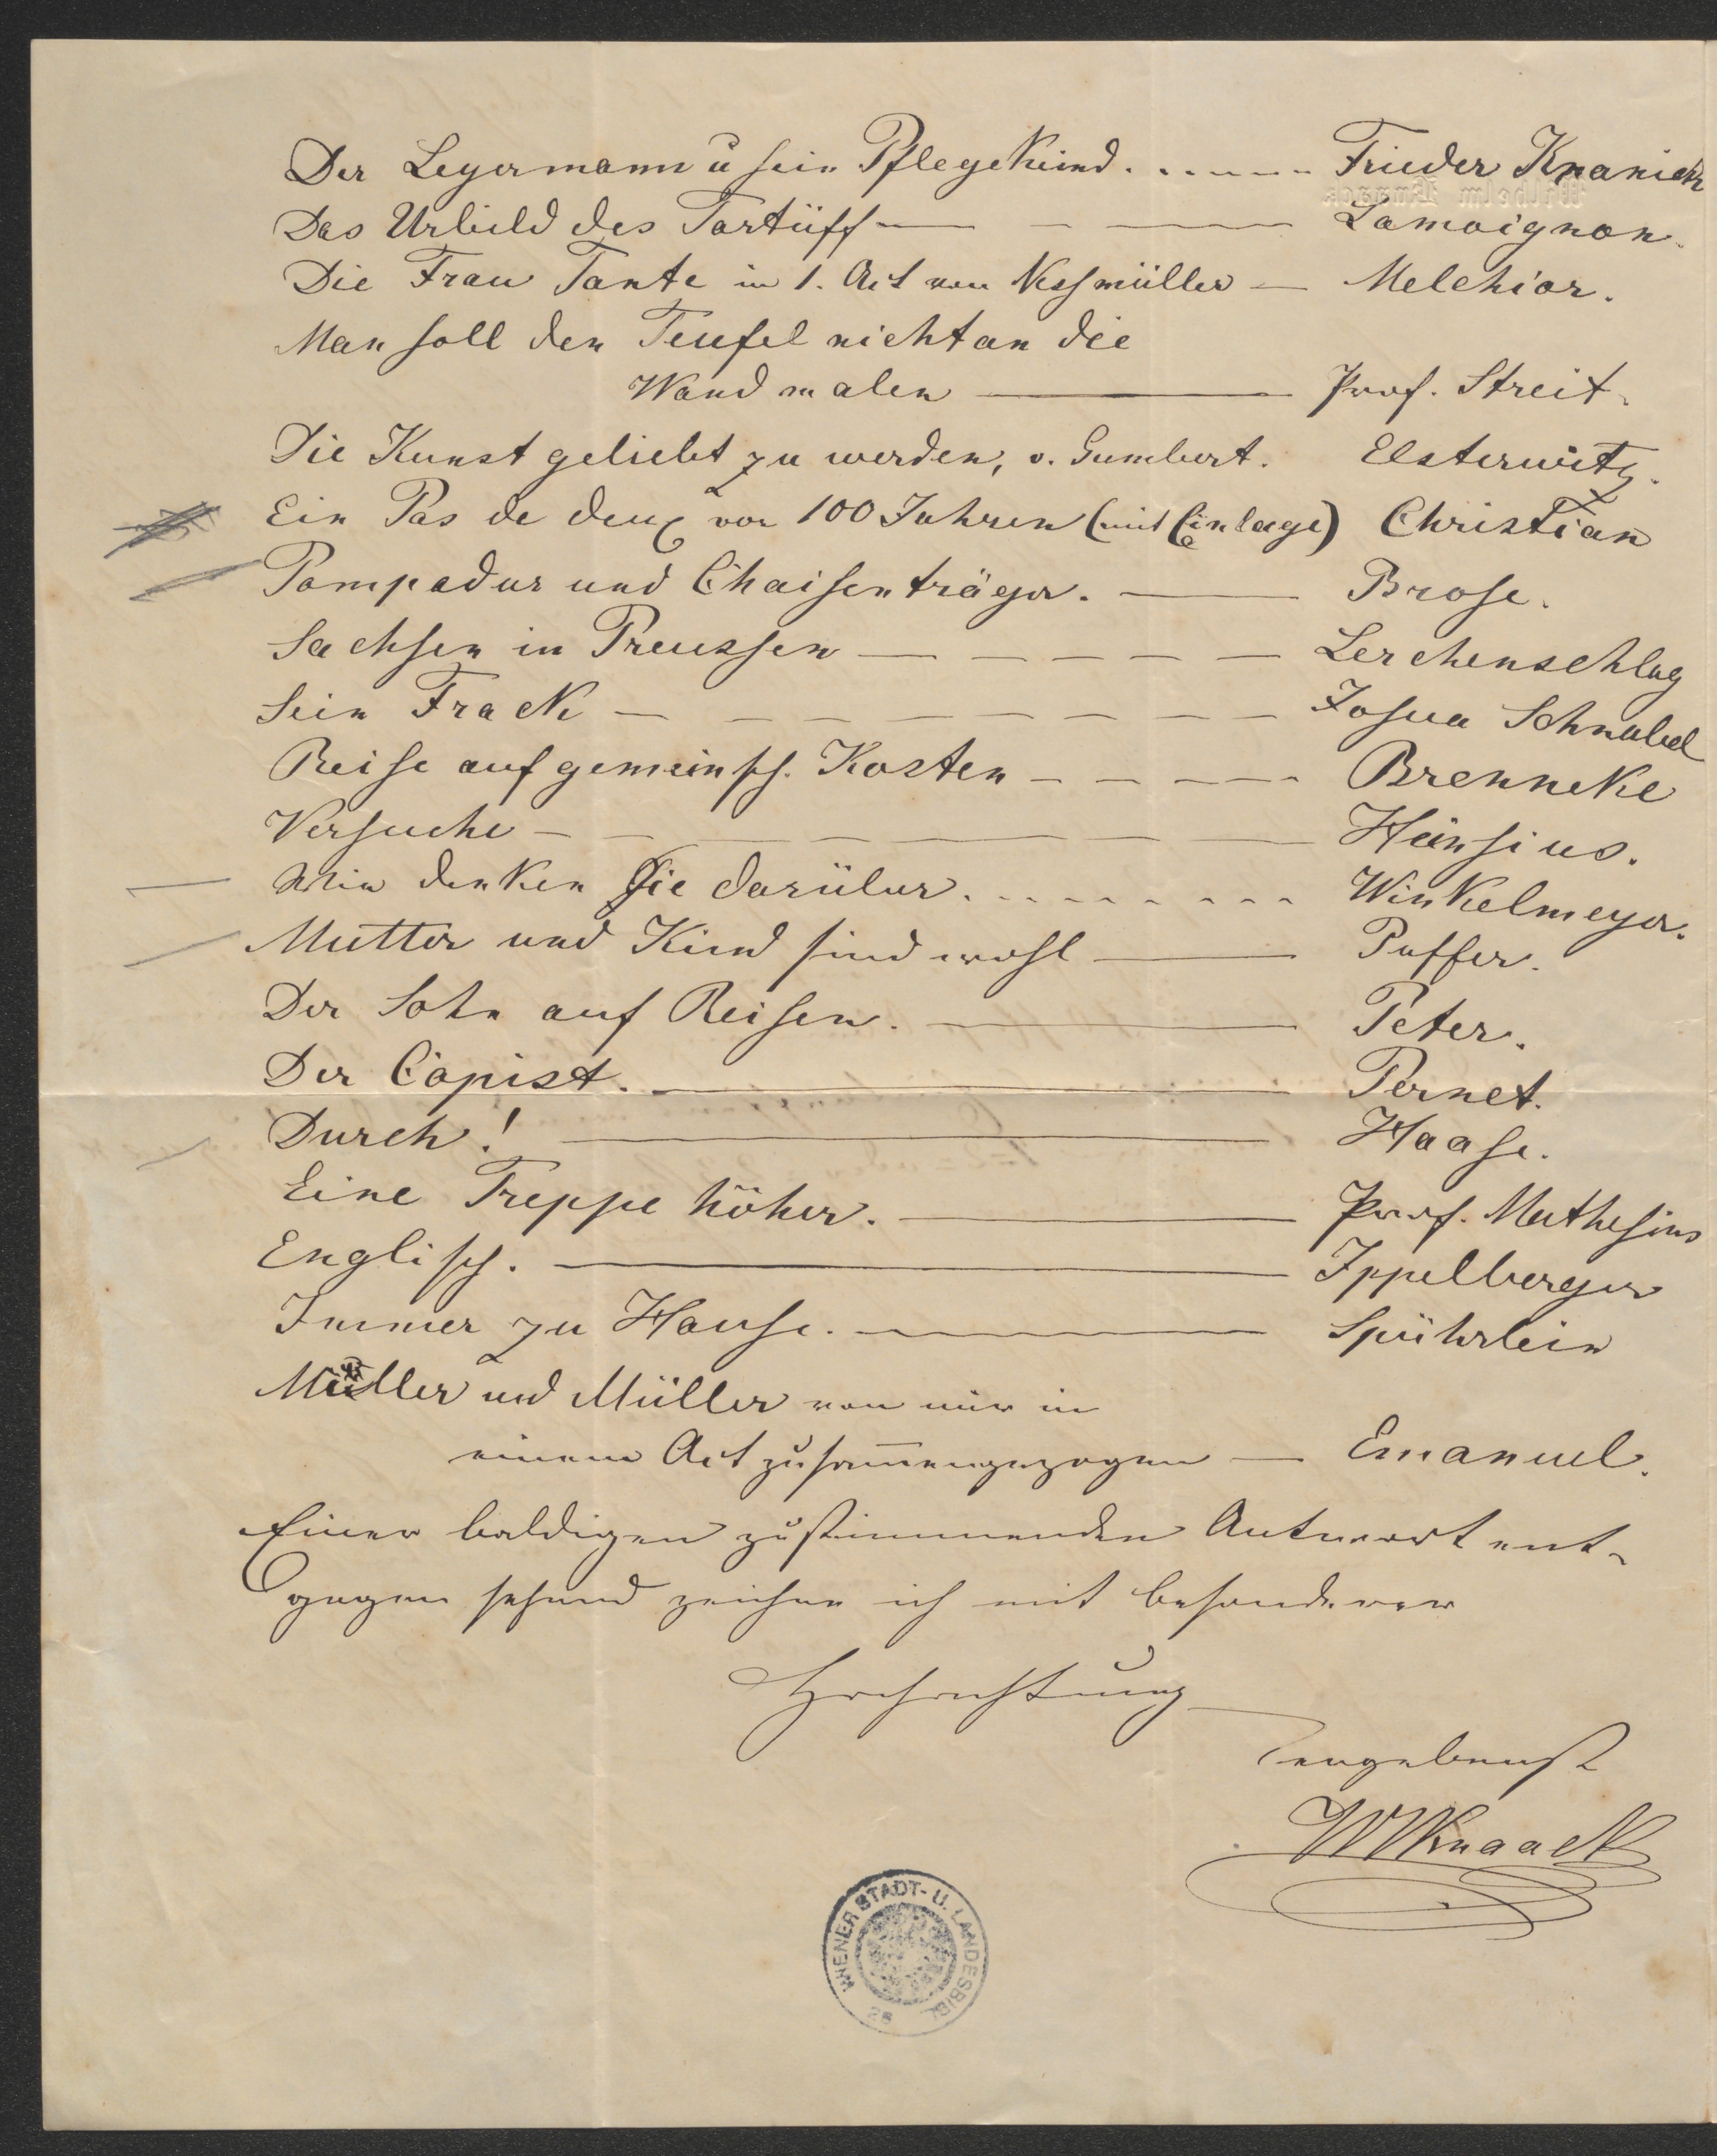 Der Leyermann u sein Pflegekind. ..---- Frieder Kranich
Das Urbild des Tartüff — - — Lamoignon.
Die Frau Tante in 1. Act von Nesmüller — Melchior.
Man soll den Teufel nicht an die
Wand malen — Prof. Streit.
Die Kunst geliebt zu werden, v. Gumbert. Elsterwitz.
Ein Pas de deux vor 100 Jahren (mit Einlage) Christian
Pompadur und Chaisenträger. — Brose.
Sachsen in Preussen — — — — — Lerchenschlag
Sein Frack — — — — — — — — Josua Schnabel
Reise auf gemeinsch. Kosten - - - — Brenneke
Versuche — — — — — — Heinsius.
Wie denken Sie darüber. - - - - - - - - Winkelmeyer.
Mutter und Kind sind wohl — Puffer.
Der Sohn auf Reisen. — Peter.
Der Copist. — Pernet.
Durch! — Haase.
Eine Treppe höher. — Prof. Mathesius
Englisch. — Ippelberger
Immer zu Hause. — Spührlein
Müller und Müller von mir in
einem Act zusam̅engezogen — Emanuel.
Einer baldigen zustimmenden Antwort ent-
gegen sehend zeichne ich mit besonderer
Hochachtung
ergebenst
WKnaack
WIENER STADT- U. LANDESBIBL.